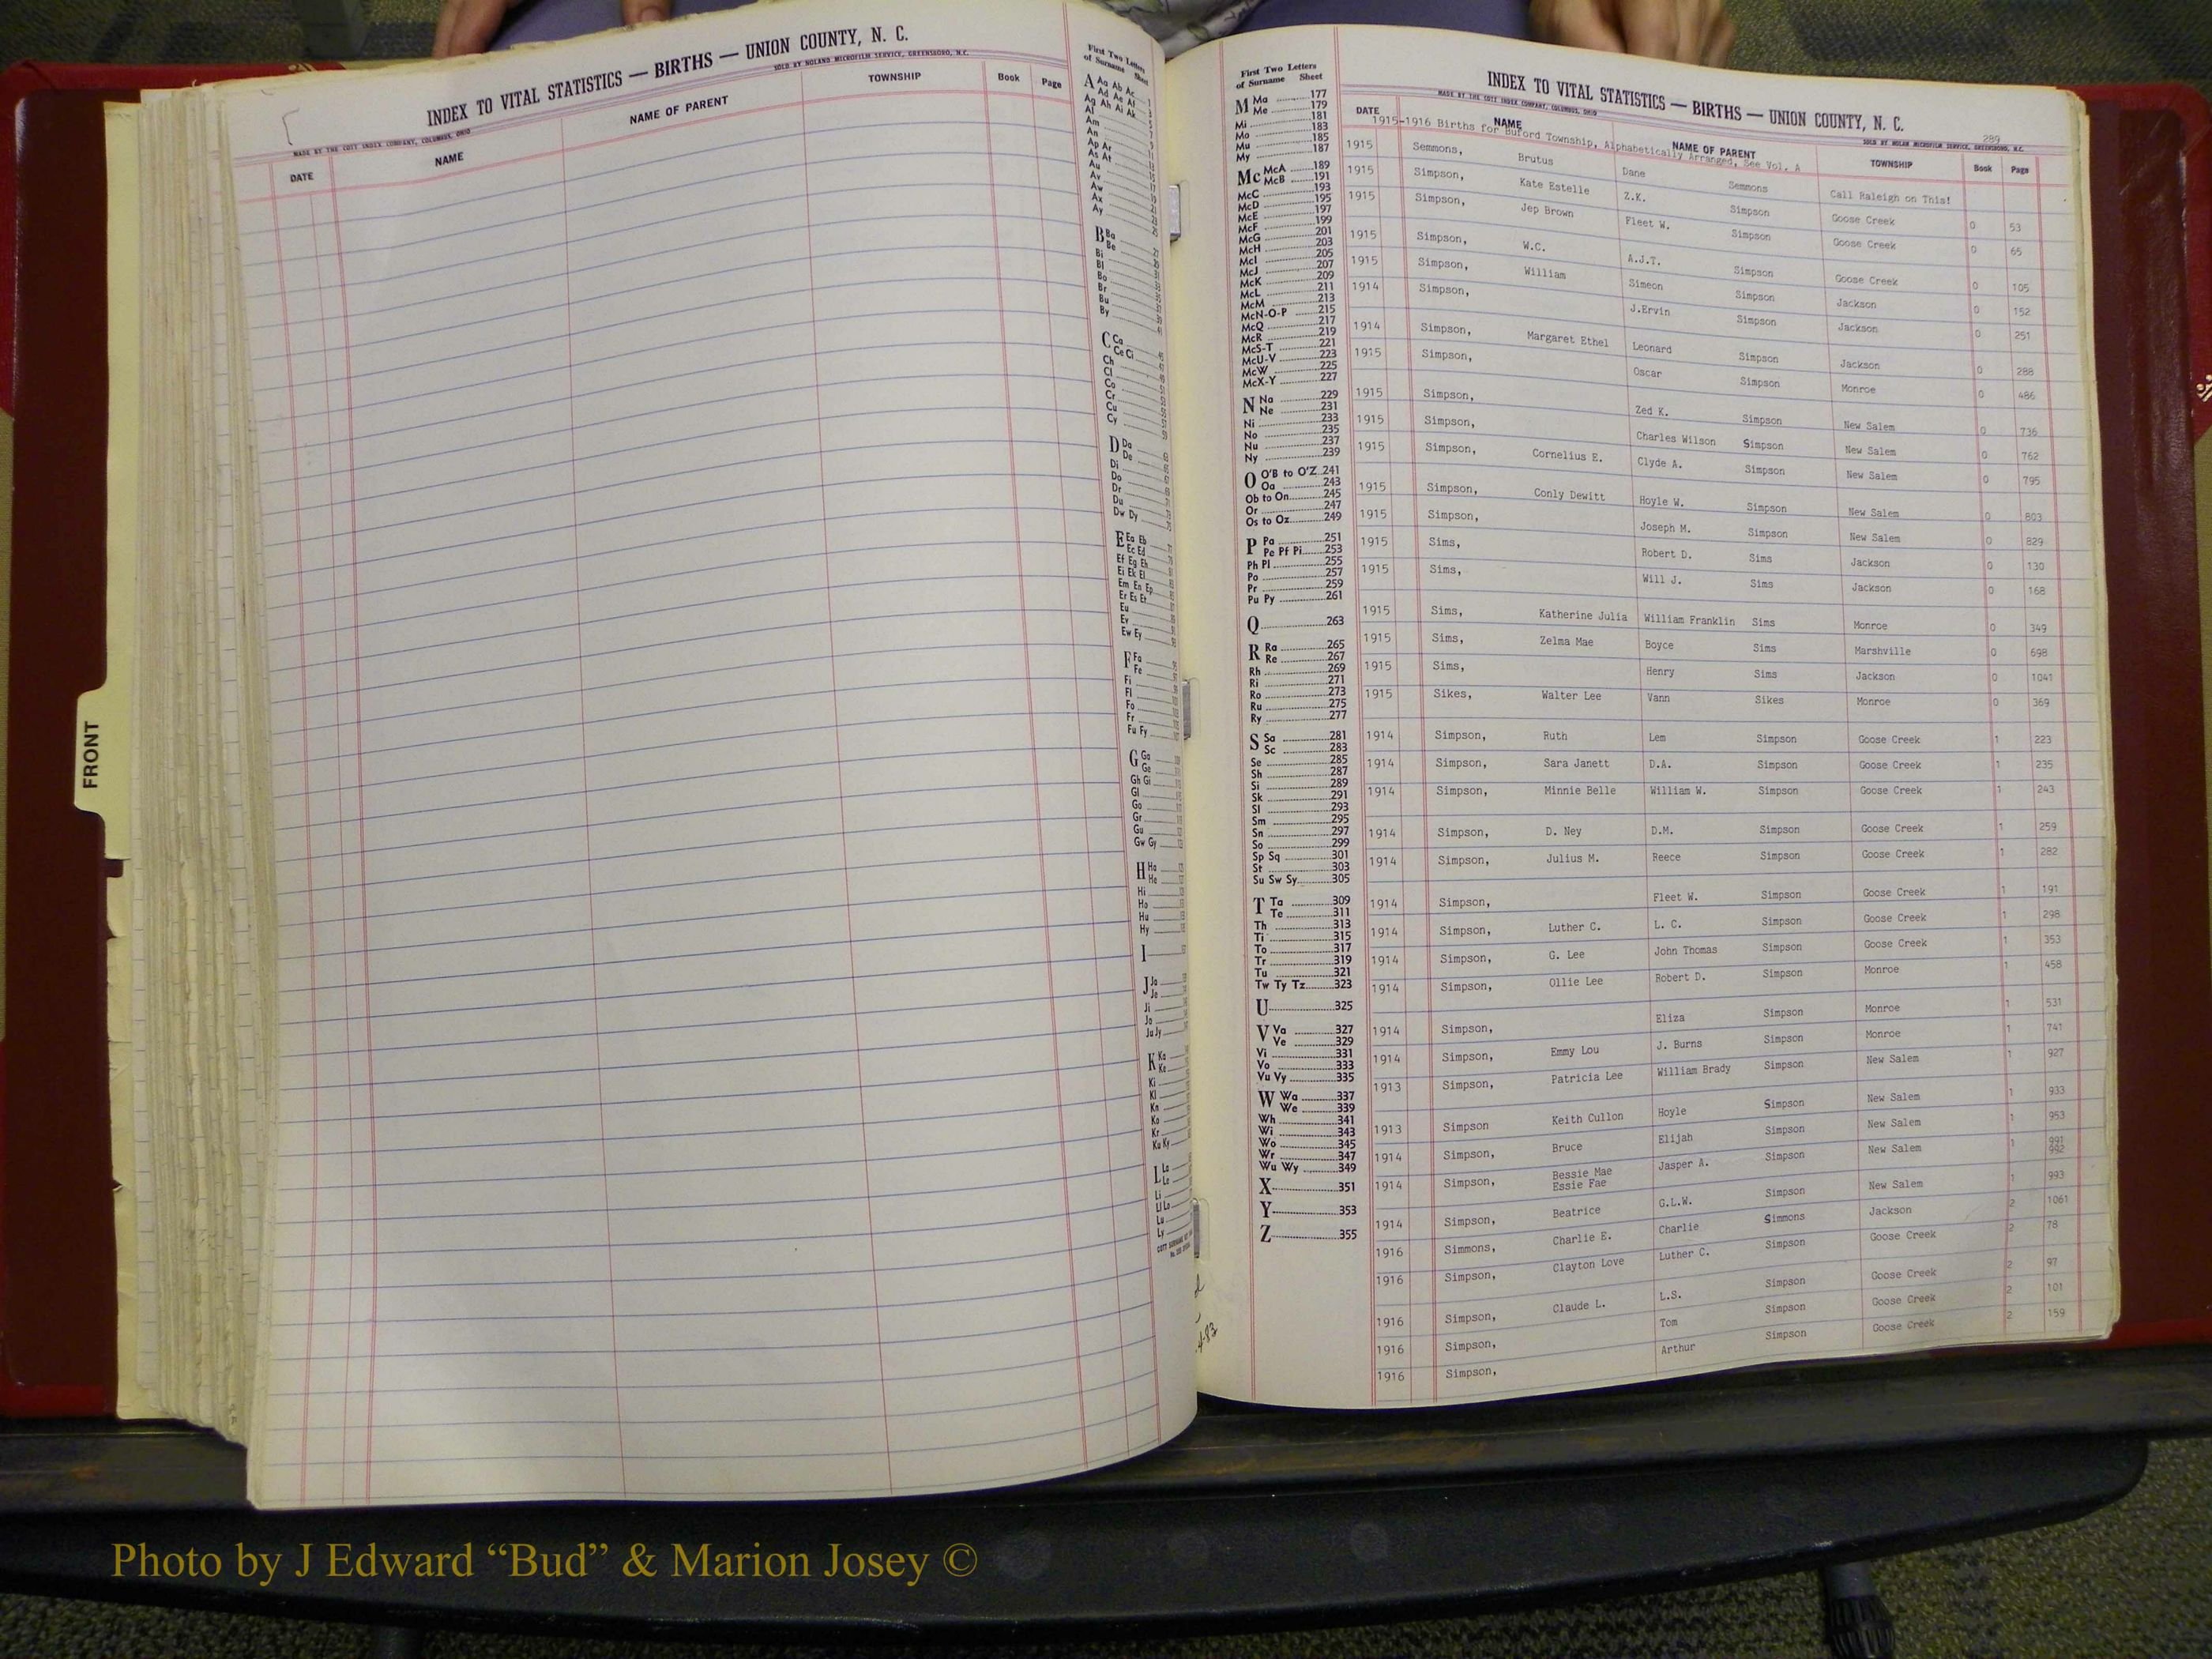 INDEX TO VITAL STATISTICS — BIRTHS — UNION COUNTY, N. C.
MADE BY THE COTT INDEX COMPANY, COLUMBUS, OHIO
SOLD BY NOLAND MICROFILM SERVICE, GREENSBORO, N.C.
DATE NAME NAME OF PARENT TOWNSHIP Book Page
First Two Letters
of Surname Sheet
A Aa Ab Ac
Ad Ae Af
Ag Ah Ai Ak
Al
Am
An
Ap Ar
As At
Au
Av
Aw
Ax
Ay
B Ba
Be
Bi
Bl
Bo
Br
Bu
By
C Ca
Ce Ci
Ch
Cl
Co
Cr
Cu
Cy
D Da
De
Di
Do
Dr
Du
Dw Dy
E Ea Eb
Ec Ed
Ef Eg Eh
Ei Ek El
Em En Ep
Er Es Et
Eu
Ev
Ew Ey
F Fa
Fe
Fi
Fl
Fo
Fr
Fu Fy
G Ga
Ge
Gh Gi
Gl
Go
Gr
Gu
Gw Gy
H Ha
He
Hi
Ho
Hu
Hy
I
J Ja
Je
Ji
Jo
Ju Jy
K Ka
Ke
Ki
Kl
Kn
Ko
Kr
Ku Ky
L La
Le
Li
Ll Lo
Lu
Ly
FRONT
First Two Letters
of Surname Sheet
M Ma 177
Me 179
Mi 181
Mo 183
Mu 185
My 187
Mc McA 189
McB 191
McC 193
McD 195
McE 197
McF 199
McG 201
McH 203
McI 205
McJ 207
McK 209
McL 211
McM 213
McN-O-P 215
McQ 217
McR 219
McS-T 221
McU-V 223
McW 225
McX-Y 227
N Na 229
Ne 231
Ni 233
No 235
Nu 237
Ny 239
O O'B to O'Z 241
Oa 243
Ob to On 245
Or 247
Os to Oz 249
P Pa 251
Pe Pf Pi 253
Ph Pl 255
Po 257
Pr 259
Pu Py 261
Q 263
R Ra 265
Re 267
Rh 269
Ri 271
Ro 273
Ru 275
Ry 277
S Sa 281
Sc 283
Se 285
Sh 287
Si 289
Sk 291
Sl 293
Sm 295
Sn 297
So 299
Sp Sq 301
St 303
Su Sw Sy 305
T Ta 309
Te 311
Th 313
Ti 315
To 317
Tr 319
Tu 321
Tw Ty Tz 323
U 325
V Va 327
Ve 329
Vi 331
Vo 333
Vu Vy 335
W Wa 337
We 339
Wh 341
Wi 343
Wo 345
Wr 347
Wu Wy 349
X 351
Y 353
Z 355
4-83
INDEX TO VITAL STATISTICS — BIRTHS — UNION COUNTY, N. C.
289
MADE BY THE COTT INDEX COMPANY, COLUMBUS, OHIO
SOLD BY NOLAN MICROFILM SERVICE, GREENSBORO, N.C.
DATE NAME NAME OF PARENT TOWNSHIP Book Page
1915-1916 Births for Buford Township, Alphabetically Arranged, See Vol. A
1915 Semmons, Brutus Dane Semmons Call Raleigh on This!
1915 Simpson, Kate Estelle Z.K. Simpson Goose Creek 0 53
1915 Simpson, Jep Brown Fleet W. Simpson Goose Creek 0 65
1915 Simpson, W.C. A.J.T. Simpson Goose Creek 0 105
1915 Simpson, William Simeon Simpson Jackson 0 152
1914 Simpson, J.Ervin Simpson Jackson 0 251
1914 Simpson, Margaret Ethel Leonard Simpson Jackson 0 288
1915 Simpson, Oscar Simpson Monroe 0 486
1915 Simpson, Zed K. Simpson New Salem 0 736
1915 Simpson, Charles Wilson Simpson New Salem 0 762
1915 Simpson, Cornelius E. Clyde A. Simpson New Salem 0 795
1915 Simpson, Conly Dewitt Hoyle W. Simpson New Salem 0 803
1915 Simpson, Joseph M. Simpson New Salem 0 829
1915 Sims, Robert D. Sims Jackson 0 130
1915 Sims, Will J. Sims Jackson 0 168
1915 Sims, Katherine Julia William Franklin Sims Monroe 0 349
1915 Sims, Zelma Mae Boyce Sims Marshville 0 698
1915 Sims, Henry Sims Jackson 0 1041
1915 Sikes, Walter Lee Vann Sikes Monroe 0 369
1914 Simpson, Ruth Lem Simpson Goose Creek 1 223
1914 Simpson, Sara Janett D.A. Simpson Goose Creek 1 235
1914 Simpson, Minnie Belle William W. Simpson Goose Creek 1 243
1914 Simpson, D. Ney D.M. Simpson Goose Creek 1 259
1914 Simpson, Julius M. Reece Simpson Goose Creek 1 282
1914 Simpson, Fleet W. Simpson Goose Creek 1 191
1914 Simpson, Luther C. L. C. Simpson Goose Creek 1 298
1914 Simpson, G. Lee John Thomas Simpson Goose Creek 1 353
1914 Simpson, Ollie Lee Robert D. Simpson Monroe 1 458
1914 Simpson, Eliza Simpson Monroe 1 531
1914 Simpson, Emmy Lou J. Burns Simpson Monroe 1 741
1913 Simpson, Patricia Lee William Brady Simpson New Salem 1 927
1913 Simpson Keith Cullon Hoyle Simpson New Salem 1 933
1914 Simpson, Bruce Elijah Simpson New Salem 1 953
1914 Simpson, Bessie Mae Jasper A. Simpson New Salem 1 991
Essie Fae 992
1914 Simpson, Beatrice G.L.W. Simpson New Salem 1 993
1916 Simmons, Charlie E. Charlie Simmons Jackson 2 1061
1916 Simpson, Clayton Love Luther C. Simpson Goose Creek 2 78
1916 Simpson, Claude L. L.S. Simpson Goose Creek 2 97
1916 Simpson, Tom Simpson Goose Creek 2 101
1916 Simpson, Arthur Simpson Goose Creek 2 159
Photo by J Edward “Bud” & Marion Josey ©